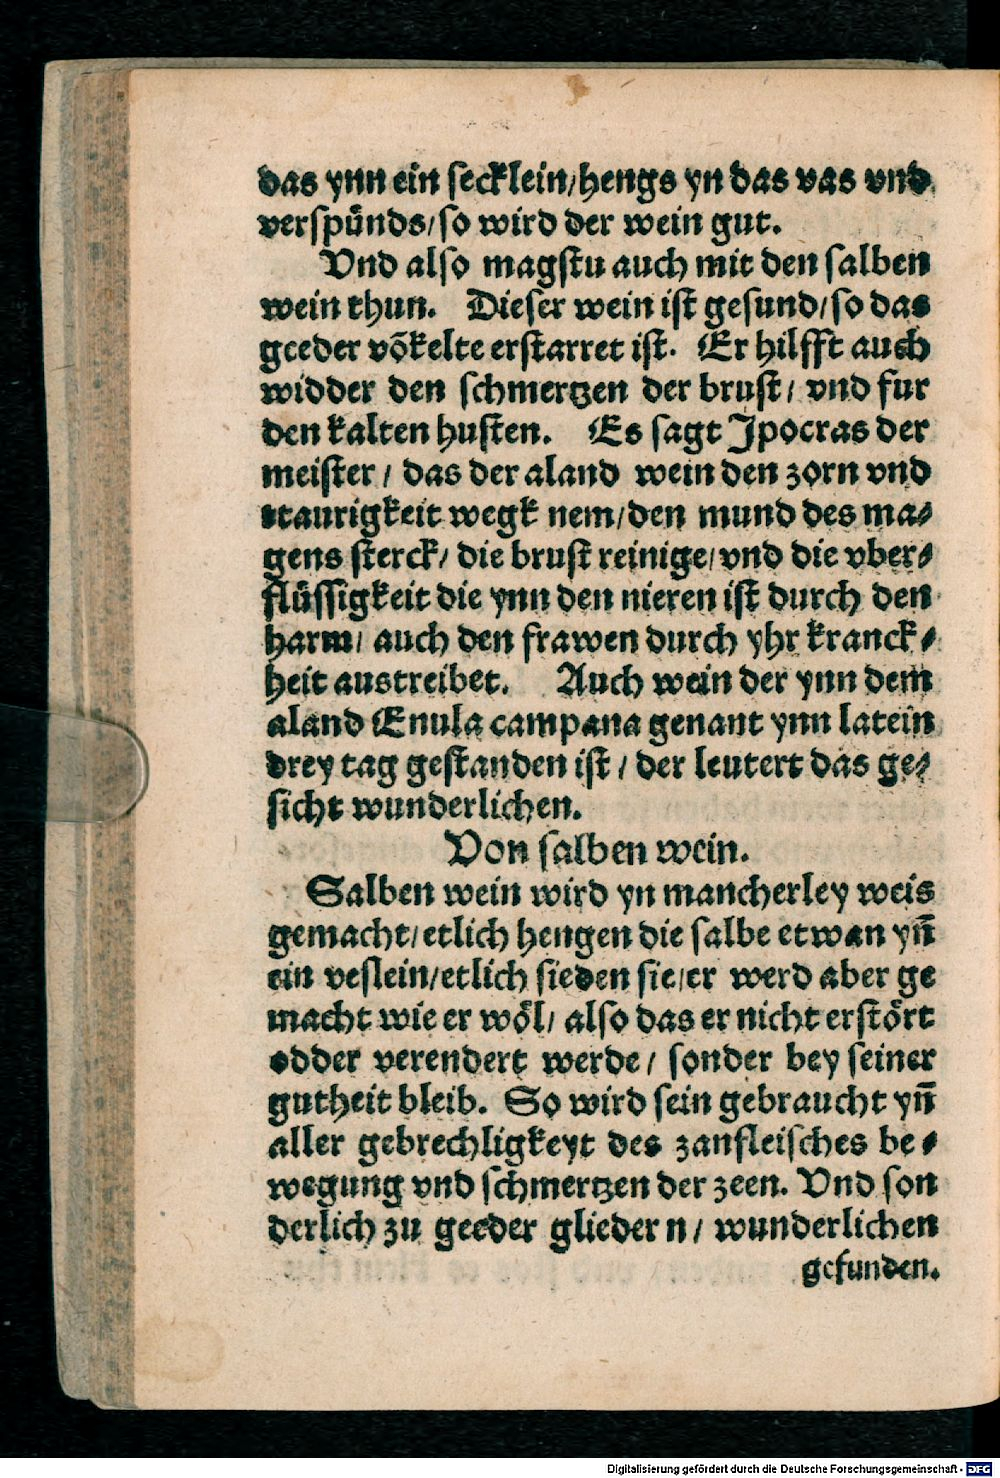 das ynn ein secklein/hengs yn das vas vnd
verspünds/so wird der wein gut.
Vnd also magstu auch mit den salben
wein thun. Dieser wein ist gesund/so das
geeder võkelte erstarret ist. Er hilfft auch
widder den schmertzen der brust/ vnd fur
den kalten husten. Es sagt Jpocras der
meister/ das der aland wein den zorn vnd
traurigkeit wegk nem/den mund des ma⸗
gens sterck/ die brust reinige/vnd die vber⸗
flüssigkeit die ynn den nieren ist durch den
harm/ auch den frawen durch yhr kranck⸗
heit austreibet. Auch wein der ynn dem
aland Enula campana genant ynn latein
drey tag gestanden ist/ der leutert das ge⸗
sicht wunderlichen.
Von salben wein.
Salben wein wird yn mancherley weis
gemacht/etlich hengen die salbe etwan yñ
ein veslein/etlich sieden sie/er werd aber ge
macht wie er wöl/ also das er nicht erstört
odder verendert werde/ sonder bey seiner
gutheit bleib. So wird sein gebraucht yñ
aller gebrechligkeyt des zanfleisches be⸗
wegung vnd schmertzen der zeen. Vnd son
derlich zu geeder glieder n/ wunderlichen
gefunden.
Digitalisierung gefördert durch die Deutsche Forschungsgemeinschaft - DFG